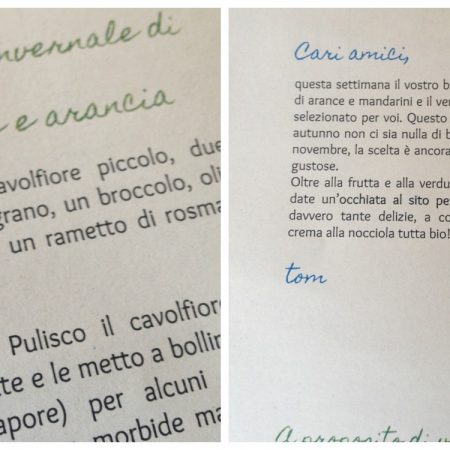 nvernale di
e arancia
avolfiore piccolo, due
grano, un broccolo, oli
un rametto di rosma
Pulisco il cavolfiore
te e le metto a bollir
apore) per alcuni
morbide ma
Cari amici,
questa settimana il vostro b
di arance e mandarini e il ver
selezionato per voi. Questo
autunno non ci sia nulla di b
novembre, la scelta è ancora
gustose.
Oltre alla frutta e alla verdu
date un'occhiata al sito pe
davvero tante delizie, a co
crema alla nocciola tutta bio!
tom
A proposito di